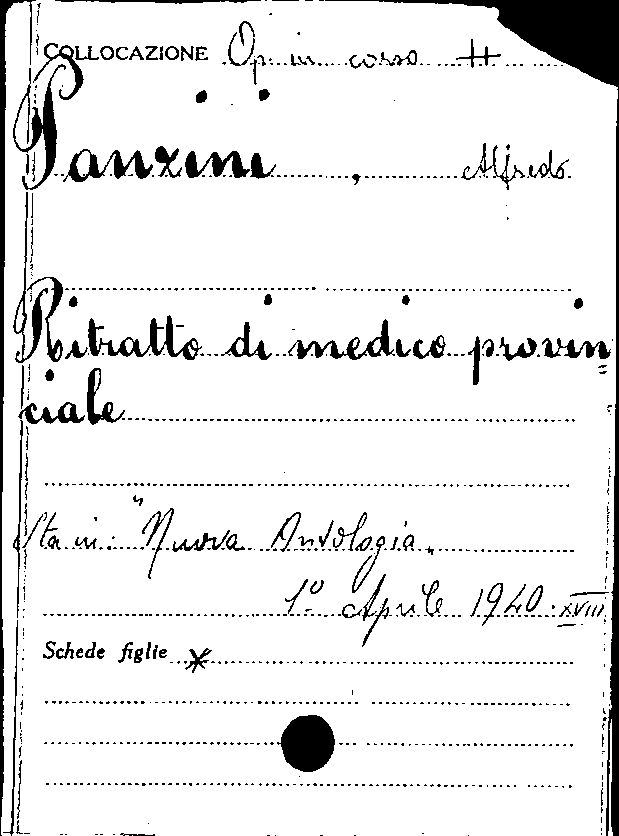 COLLOCAZIONE Op. in corso #
Panzini, Alfredo
Ritratto di medico provin=
ciale
Sta in: "Nuova Antologia„
1º Aprile 1940. XVIII
Schede figlie *